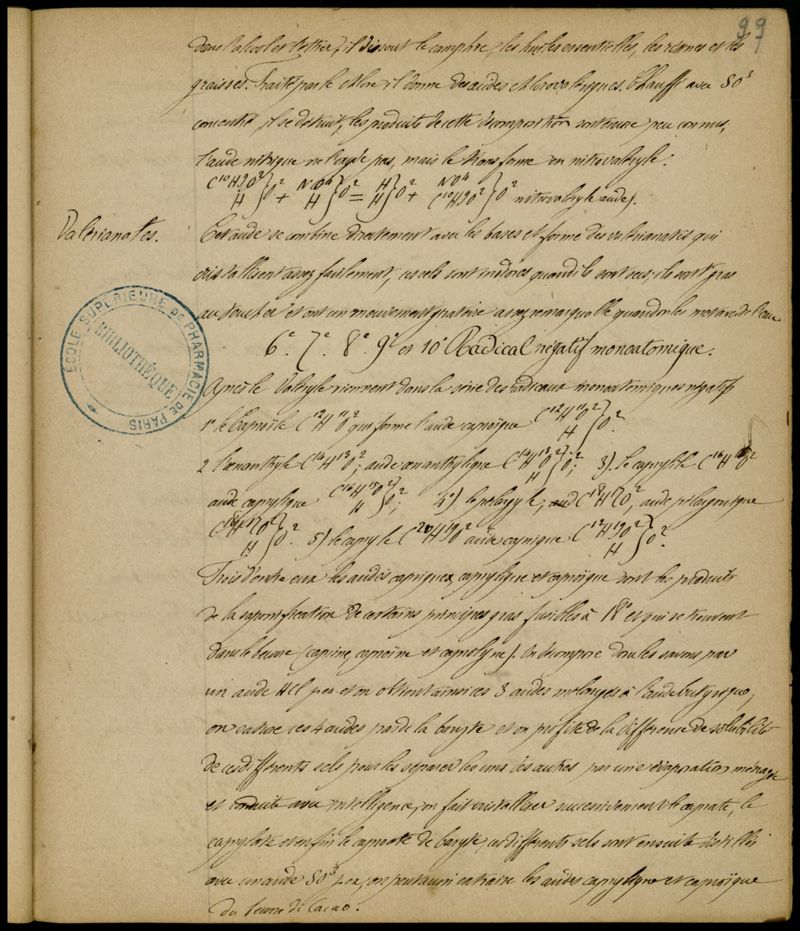 99
dans l'alcool et l'éther, il dissout le camphre, les huiles essentielles, les résines et les
graisses. Traité par le chlore il donne des acides chlorovalériques. Chauffé avec SO³
concentré il se détruit, les produits de cette décomposition sont encore peu connus,
l'acide nitrique ne l'oxyde pas, mais le transforme en nitrovalryle.
C¹⁰H⁹O² H } O² + NO⁴ H } O² = H H } O² + NO⁴ C¹⁰H⁹O² } O² nitrovalryle acide).
Valérianates.
Cet acide se combine directement avec les bases et forme des valérianates qui
cristallisent assez facilement, ces sels sont inodores quand ils sont secs, ils sont gras
au toucher et ont un mouvement giratoire assez remarquable quand on les met sur de l'eau
6e. 7e. 8e. 9e et 10e Radical négatif monoatomique.
Après le Valryle viennent dans la série des radicaux monoatomiques négatifs
1° le C¹²H¹¹O² qui forme l'acide caproïque C¹²H¹¹O² H } O².
2 l'œnanthyle C¹⁴H¹³O²; acide œnanthylique C¹⁴H¹³O² H } O²; 3). le capryle C¹⁶H¹⁵O²
acide caprylique C¹⁶H¹⁵O² H } O²; 4°) le pélargyle, C¹⁸H¹⁷O², acide pélargonique
C¹⁸H¹⁷O² H } O². 5) le capryle C²⁰H¹⁹O² acide caprique H } O².
Trois d'entre eux les acides caprique, caprylique et caproïque sont les produits
de la saponification de certains principes gras fusibles à 18° et qui se trouvent
dans le beurre (caprine, caproïne et). On décompose donc les savons par
un acide HCl et on obtient ainsi ces 3 acides mélangés à l'acide butyrique,
on sature ces 4 acides par de la baryte et on profite de la différence de solubilité
de ces différents sels pour les séparer les uns des autres par une évaporation ménagée
et conduite avec intelligence, on fait cristalliser successivement le caprate, le
caprylate et enfin le caproate de baryte, ces différents sels sont ensuite distillés
avec un acide SO³, on peut aussi extraire les acides caprylique et caproïque
du beurre de Cacao.
ÉCOLE SUPÉRIEURE DE PHARMACIE DE PARIS
BIBLIOTHÈQUE